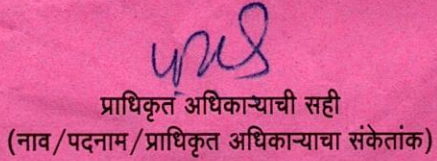 प्राधिकृत अधिकाऱ्याची सही
(नाव/पदनाम/प्राधिकृत अधिकाऱ्याचा संकेतांक)